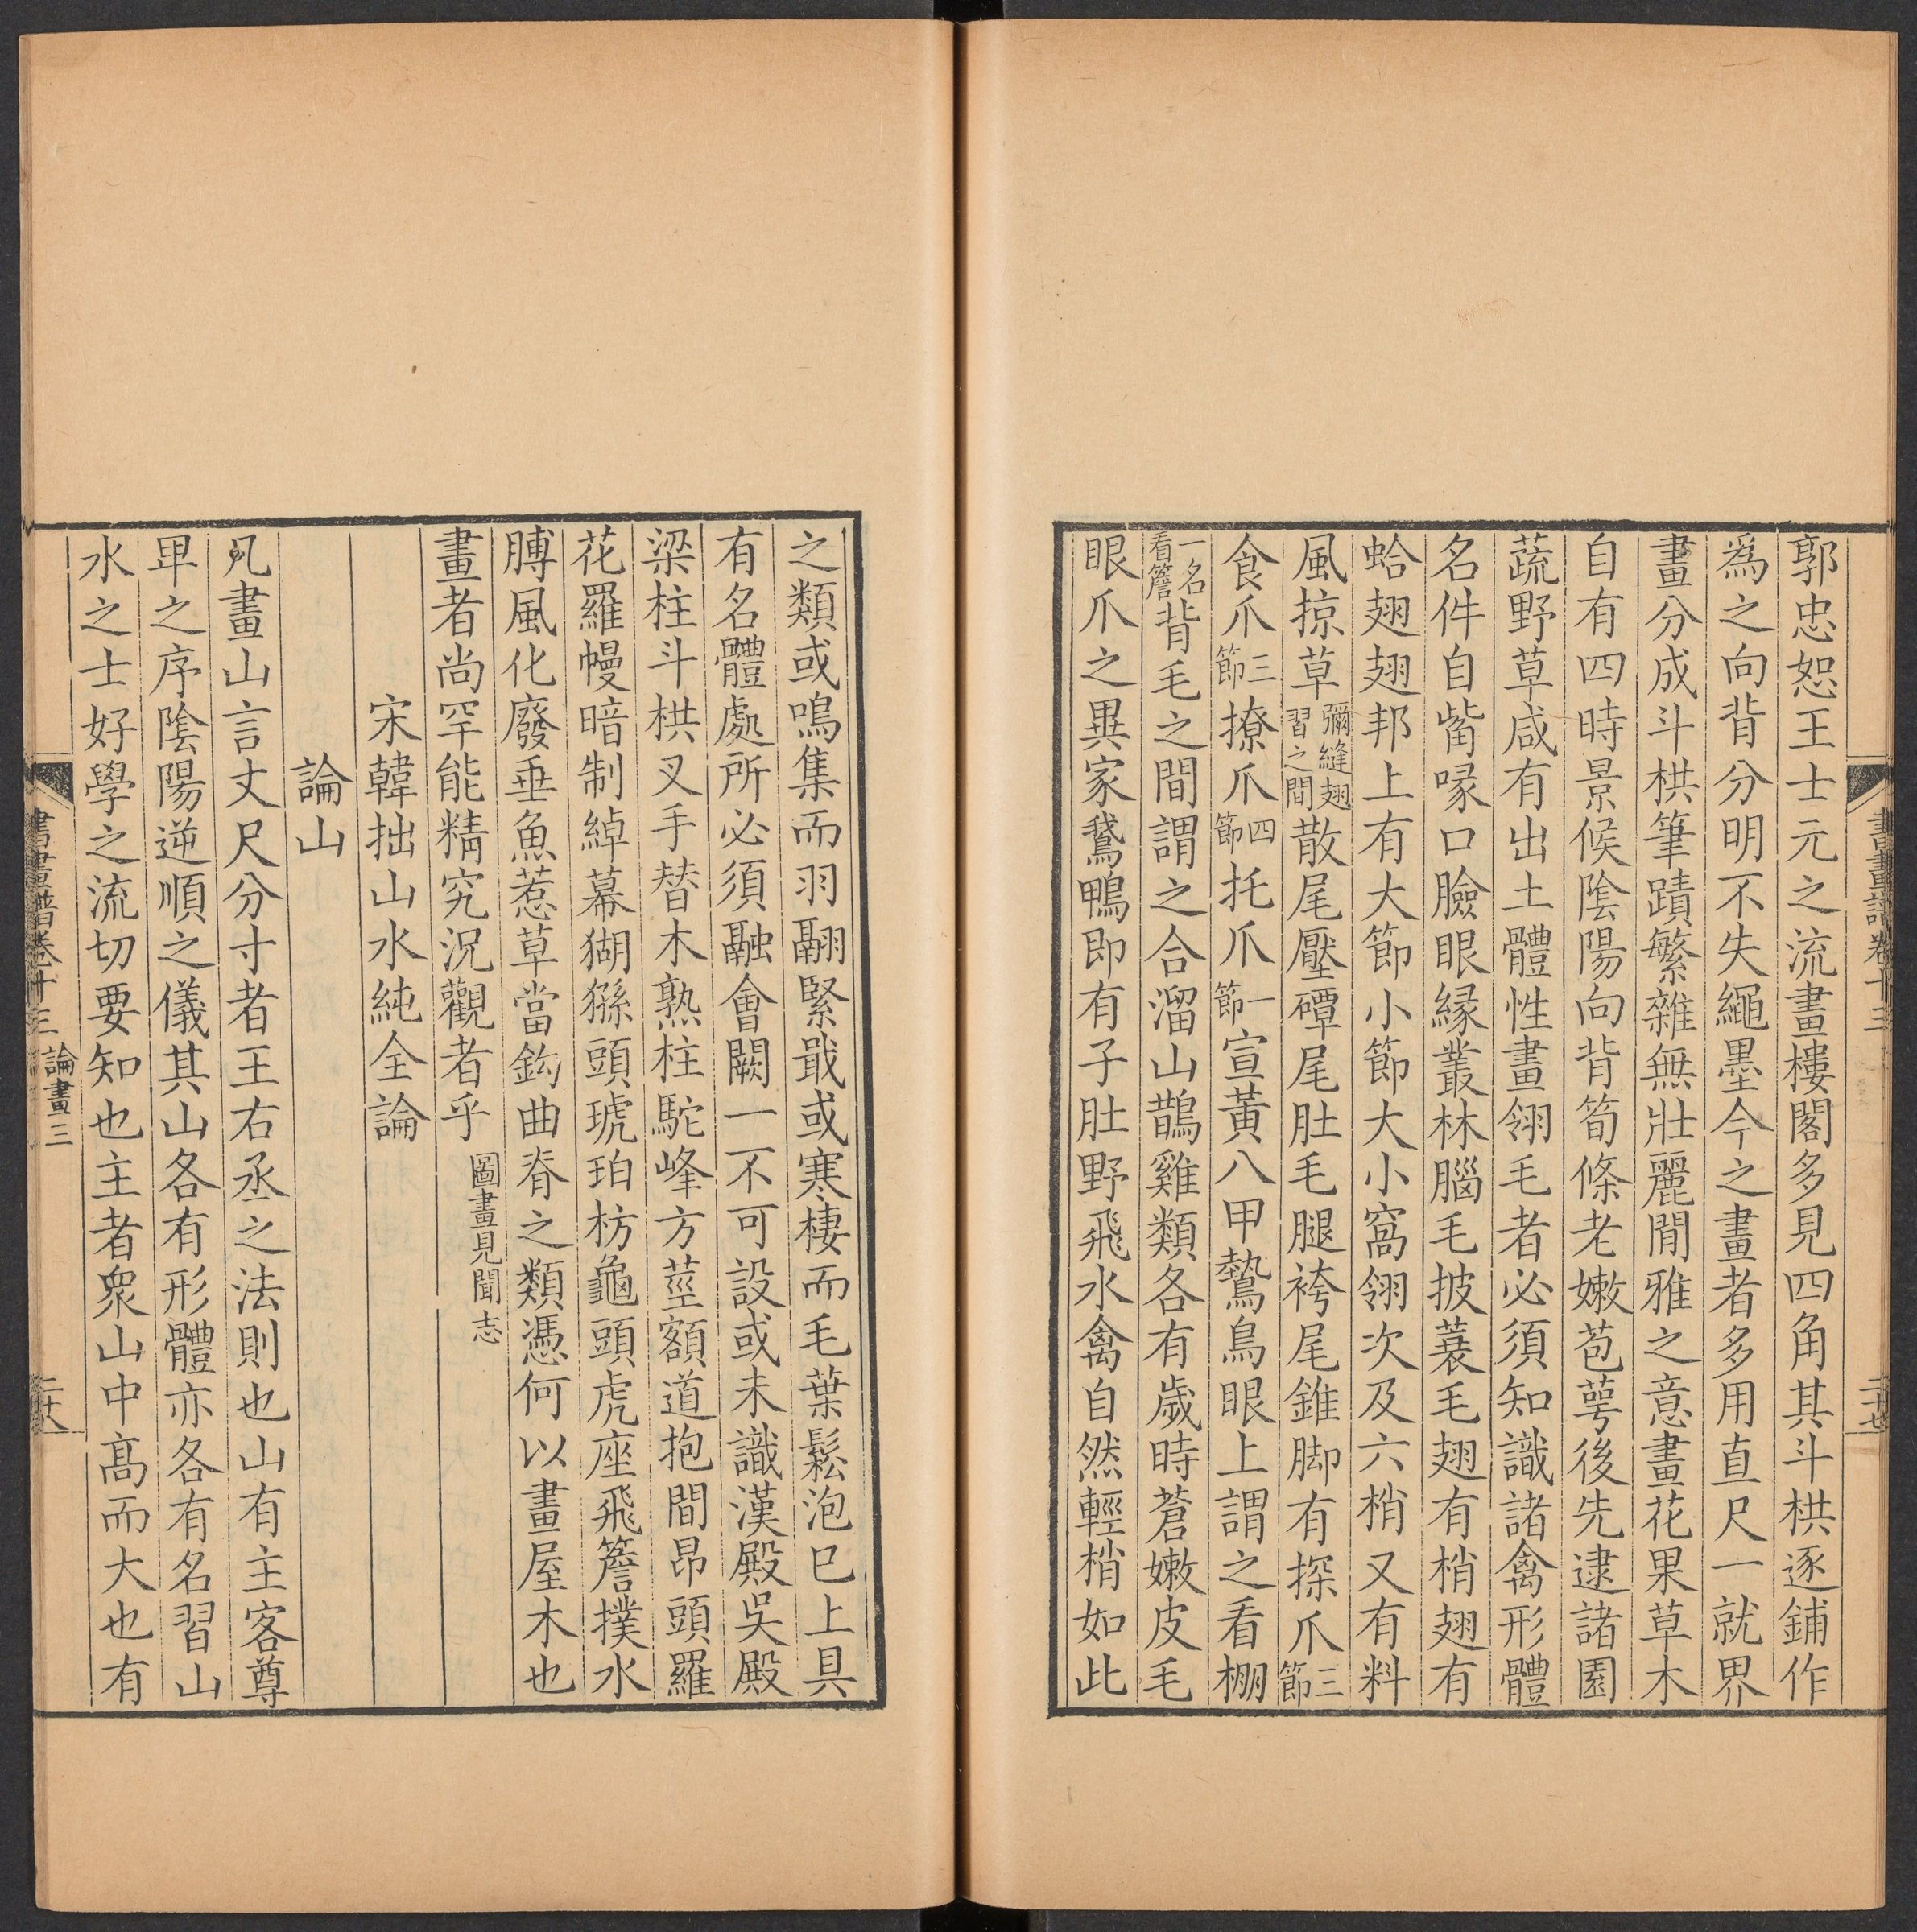 郭忠恕王士元之流畫樓閣多見四角其斗栱逐鋪作
為之向背分明不失繩墨今之畫者多用直尺一就界
畫分成斗栱筆蹟繁雜無壯麗閒雅之意畫花果草木
自有四時景候陰陽向背筍條老嫩苞萼後先逮諸園
蔬野草咸有出土體性畫翎毛者必須知識諸禽形體
名件自觜喙口臉眼緣叢林腦毛披蓑毛翅有梢翅有
蛤翅翅邦上有大節小節大小窩翎次及六梢又有料
風掠草彌縫翅習之間散尾壓磹尾肚毛腿袴尾錐脚有探爪三節
食爪三節撩爪四節托爪一節宣黃八甲鷙鳥眼上謂之看棚
一名看簷背毛之間謂之合溜山鵲雞類各有歲時蒼嫩皮毛
眼爪之異家鵞鴨即有子肚野飛水禽自然輕梢如此
書畫譜卷十三
二十七
之類或鳴集而羽翮緊戢或寒棲而毛葉鬆泡已上具
有名體處所必須融會闕一不可設或未識漢殿吳殿
梁柱斗栱叉手替木熟柱駝峰方莖額道抱間昂頭羅
花羅幔暗制綽幕猢猻頭琥珀枋龜頭虎座飛簷撲水
膊風化廢垂魚惹草當鈎曲脊之類憑何以畫屋木也
畫者尚罕能精究況觀者乎 圖畫見聞志
宋韓拙山水純全論
論山
凡畫山言丈尺分寸者王右丞之法則也山有主客尊
卑之序陰陽逆順之儀其山各有形體亦各有名習山
水之士好學之流切要知也主者衆山中高而大也有
書畫譜卷十三 論畫三
二十八